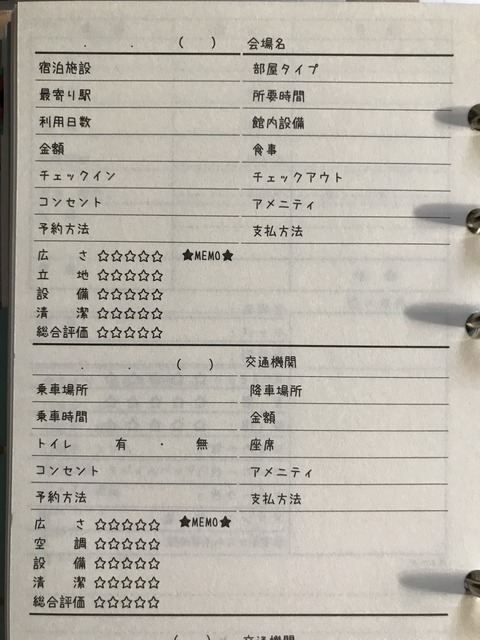 . . ( ) 会場名
宿泊施設 部屋タイプ
最寄り駅 所要時間
利用日数 館内設備
金額 食事
チェックイン チェックアウト
コンセント アメニティ
予約方法 支払方法
広さ ☆☆☆☆☆ ★MEMO★
立地 ☆☆☆☆☆
設備 ☆☆☆☆☆
清潔 ☆☆☆☆☆
総合評価 ☆☆☆☆☆
. . ( ) 交通機関
乗車場所 降車場所
乗車時間 金額
トイレ 有 ・ 無 座席
コンセント アメニティ
予約方法 支払方法
広さ ☆☆☆☆☆ ★MEMO★
空調 ☆☆☆☆☆
設備 ☆☆☆☆☆
清潔 ☆☆☆☆☆
総合評価 ☆☆☆☆☆
( ) 交通機関